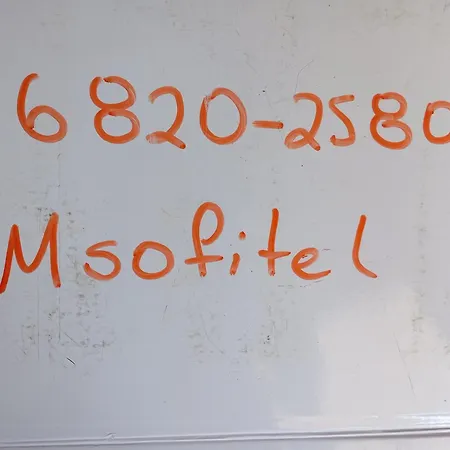 6 820-2580
Msofitel